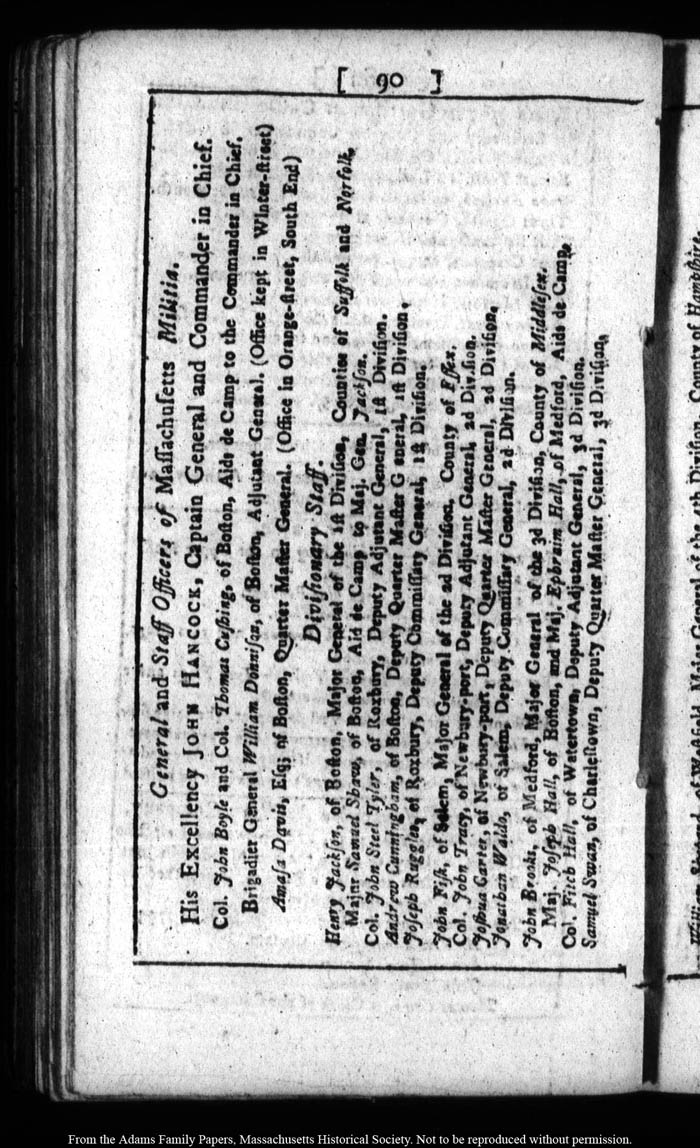 [ 90 ]
General and Staff Officers of Maſſachuſetts Militia.
His Excellency JOHN HANCOCK, Captain General and Commander in Chief.
Col. John Boyle and Col. Thomas Cuſhing, of Boſton, Aids de Camp to the Commander in Chief.
Brigadier General William Donniſon, of Boſton, Adjutant General. (Office kept in Winter-ſtreet)
Amaſa Davis, Eſq; of Boſton, Quarter Maſter General. (Office in Orange-ſtreet, South End)
Diviſionary Staff.
Henry Jackſon, of Boſton, Major General of the 1ſt Diviſion, Counties of Suffolk and Norfolk.
Major Samuel Shaw, of Boſton, Aid de Camp to Maj. Gen. Jackſon.
Col. John Steel Tyler, of Roxbury, Deputy Adjutant General, 1ſt Diviſion.
Andrew Cunningham, of Boſton, Deputy Quarter Maſter General, 1ſt Diviſion.
Joſeph Ruggles, of Roxbury, Deputy Commiſſary General, 1ſt Diviſion.
John Fiſk, of Salem, Major General of the 2d Diviſion, County of Eſſex.
Col. John Tracy, of Newbury-port, Deputy Adjutant General, 2d Diviſion.
Joſhua Carter, of Newbury-port, Deputy Quarter Maſter General, 2d Diviſion.
Jonathan Waldo, of Salem, Deputy Commiſſary General, 2d Diviſion.
John Brooks, of Medford, Major General of the 3d Diviſion, County of Middleſex.
Maj. Joſeph Hall, of Boſton, and Maj. Ephraim Hall, of Medford, Aids de Camp.
Col. Fitch Hall, of Watertown, Deputy Adjutant General, 3d Diviſion.
Samuel Swan, of Charleſtown, Deputy Quarter Maſter General, 3d Diviſion.
From the Adams Family Papers, Massachusetts Historical Society. Not to be reproduced without permission.